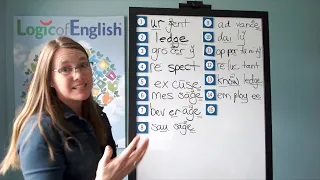 Logic of English
1 ur gent
2 ledge
3 gro cer y
4 re spect
5 ex cuse
6 mes sage
7 bev er age
8 sau sage
9 ad vance
10 dai ly
11 op por tu ni ty
12 re luc tant
13 know ledge
14 em ploy ee
15